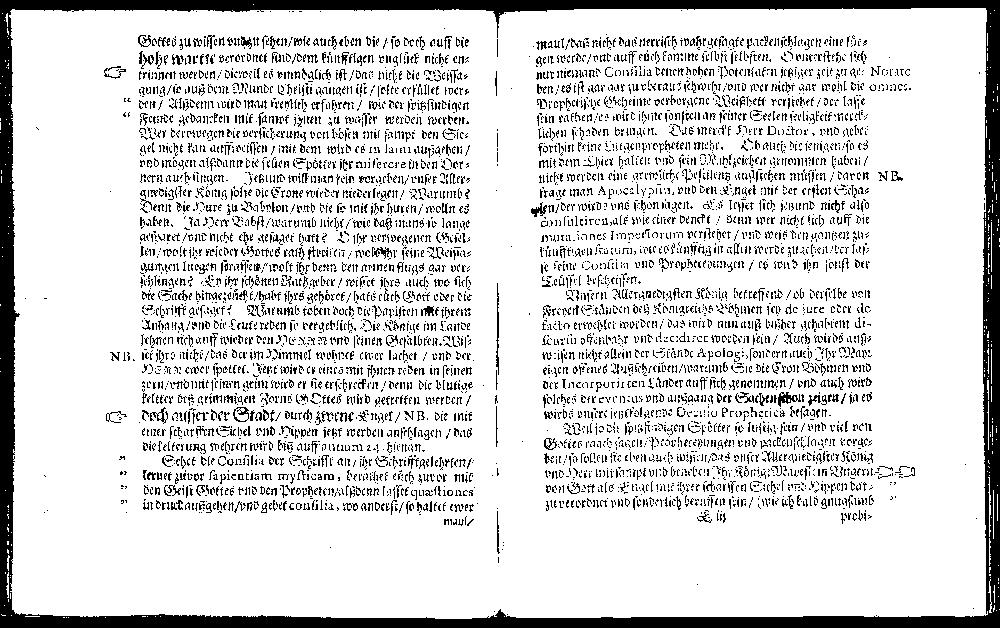 Gottes zu wissen vnd zu sehen/wie auch eben die/so doch auff die
hohe warte verordnet sind/dem künfftigen vnglück nicht en-
trinnen werden/dieweil es vnmöglich ist/das nicht die Weissa-
gung/so auß dem Munde Christi gangen ist/solte erfüllet wer-
den/ Alßdenn wird man freylich erfahren/ wie der spitzfindigen
Feinde gedancken mit sampt jhnen zu wasser werden werden.
Wer derowegen die versicherung von bösen mit sampt den Sie-
gel nicht kan auffweisen/mit dem wird es in außgehen/
vnd mögen alßdann die selben Spötter jhr miserere in den Dor-
nern auch singen. Jetzund will man sein vorgeben/vnser Aller-
gnedigster König solte die Crone wieder niederlegen/ Warumb?
Denn die Hure zu Babylon/vnd die so mit jhr huren/wolln es
haben. Ja Herr Babst/warumb nicht/wie daß mans so lange
gesparet/vnd nicht ehe gesaget hatt? O jhr verwegenen Gesel-
len/wolt jhr wieder Gottes rath streiten/ wolt jhr seine Weissa-
gungen Luegen straffen/wolt jhr denn den armen flugs gar ver-
schlingen? Ey jhr schönen Rathgeber/ wisset jhrs auch wo sich
die Sache hingezeücht/habt jhrs gehöret/hats euch Gott oder die
Schrifft gesaget? Warumb toben doch die Papisten mit jhrem
Anhang/vnd die Leute reden so vergeblich. Die Könige im Lande
lehnen sich auff wieder den HERRN vnd seinen Gesalbten. Wis-
NB. set jhrs nicht/das der im Himmel wohnet ewer lachet / vnd der
HERR ewer spottet. Jetzt wird er eines mit jhnen reden in seinen
zorn/vnd mit seinen grim wird er sie erschrecken/denn die blutige
kelter deß grimmigen Zorns GOttes wird getretten werden/
doch ausser der Stadt/durch zweene Engel/NB. die mit
einer scharffen Sichel vnd Hippen jetzt werden anschlagen / das
die kelterung wehren wird biß auff annum 24. hienan.
Sehet die Consilia der Schrifft an/jhr Schrifftgelehrten/
lernet zuvor sapientiam mysticam, berathet euch zuvor mit
den Geist Gottes vnd den Propheten/alßdenn lasset quæstiones
in druck außgehen/vnd gebet consilia, wo anderst/so haltet ewer
maul/
maul/daß nicht das nerrisch wahrgesagte packenschlagen eine lüe-
gen werde/vnd auff euch komme selbst selbsten. O vnterstehe sich
nur niemand Consilia denen hohen Potentaten jetziger zeit zu ge- Notate
ben/es ist gar zu vberauß schwehr/vnd wer nicht gar wohl die omnes.
Prophetische Geheime verborgene Weißheit verstehet/der lasse
sein rathen/es wird jhme sonsten an seiner Seelen seligkeit merck-
lichen schaden bringen. Das merckt Herr Doctor, vnd gebet
forthin keine Luegenpropheten mehr. Ob auch diejenigen/so es
mit dem Thier halten vnd sein Mahlzeichen genommen haben/
nicht werden eine grewliche Pestilentz außstehen müssen / davon NB.
frage man Apocalypsin, vnd den Engel mit der ersten Scha-
len/der wirds vns schon sagen. Es lesset sich jetzund nicht also
consuleiren, als wie einer dencket / denn wer nicht sich auff die
mutationes Imperiorum verstehet / vnd weis den gantzen zu-
künfftigen statum, wie es künfftig in allen werde zugehen/der las-
se seine Consilia vnd Propheceyungen / es wird jhn sonst der
Teuffel bescheissen.
Vnsern Allergnedigsten König betreffend / ob derselbe von
Freyen Ständen deß Königreichs Böhmen sey de jure oder de
facto erwehlet worden/das wird nun auß bißher gehabtem di-
scursu offenbahr vnd decidiret worden sein/ Auch wirds auß-
weisen nicht allein der Stände Apologi, sondern auch Jhr Mayt
eigen offenes Außschreiben/warumb Sie die Cron Böhmen vnd
der Incorporirten Länder auff sich genommen / vnd auch wird
solches der eventus vnd außgang der Sachen schon zeigen/ja es
wirds vnsere jetzt folgende Decisio Prophetica besagen.
Weil jhr die spitzfindigen Spötter so lustig sein / vnd viel von
Gottes raach sagen/Propheceyungen vnd packenschlagen vorge-
ben/so sollen sie eben auch wissen/das vnser Allergnedigster König
vnd Herr mit sampt vnd beneben Jhr König: Mayest: in Vngern
von Gott als Engel mit jhrer scharffen Sichel vnd Hippen dar-
zu verordnet vnd sonderlich beruffen sein/ (wie ich bald gnugsamb
E iij probi-